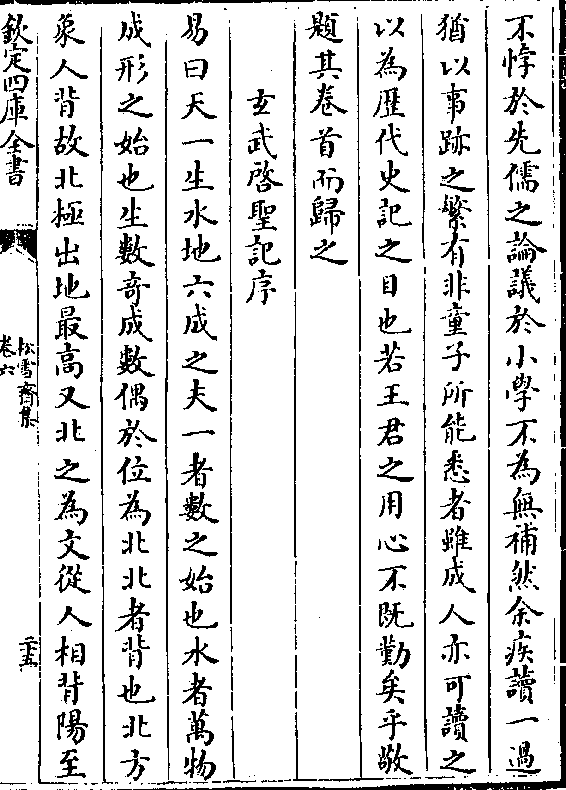 不悖於先儒之論議於小學不為無補然余疾讀一過
猶以事跡之繁有非童子所能悉者雖成人亦可讀之
以為歷代史記之目也若王君之用心不既勤矣乎敬
題其卷首而歸之
玄武啓聖記序
易曰天一生水地六成之夫一者數之始也水者萬物
成形之始也生數竒成數偶於位為北北者背也北方
象人背故北極出地最高又北之為文從人相背陽至
欽定四庫全書
松雪齋集
卷六
二十五